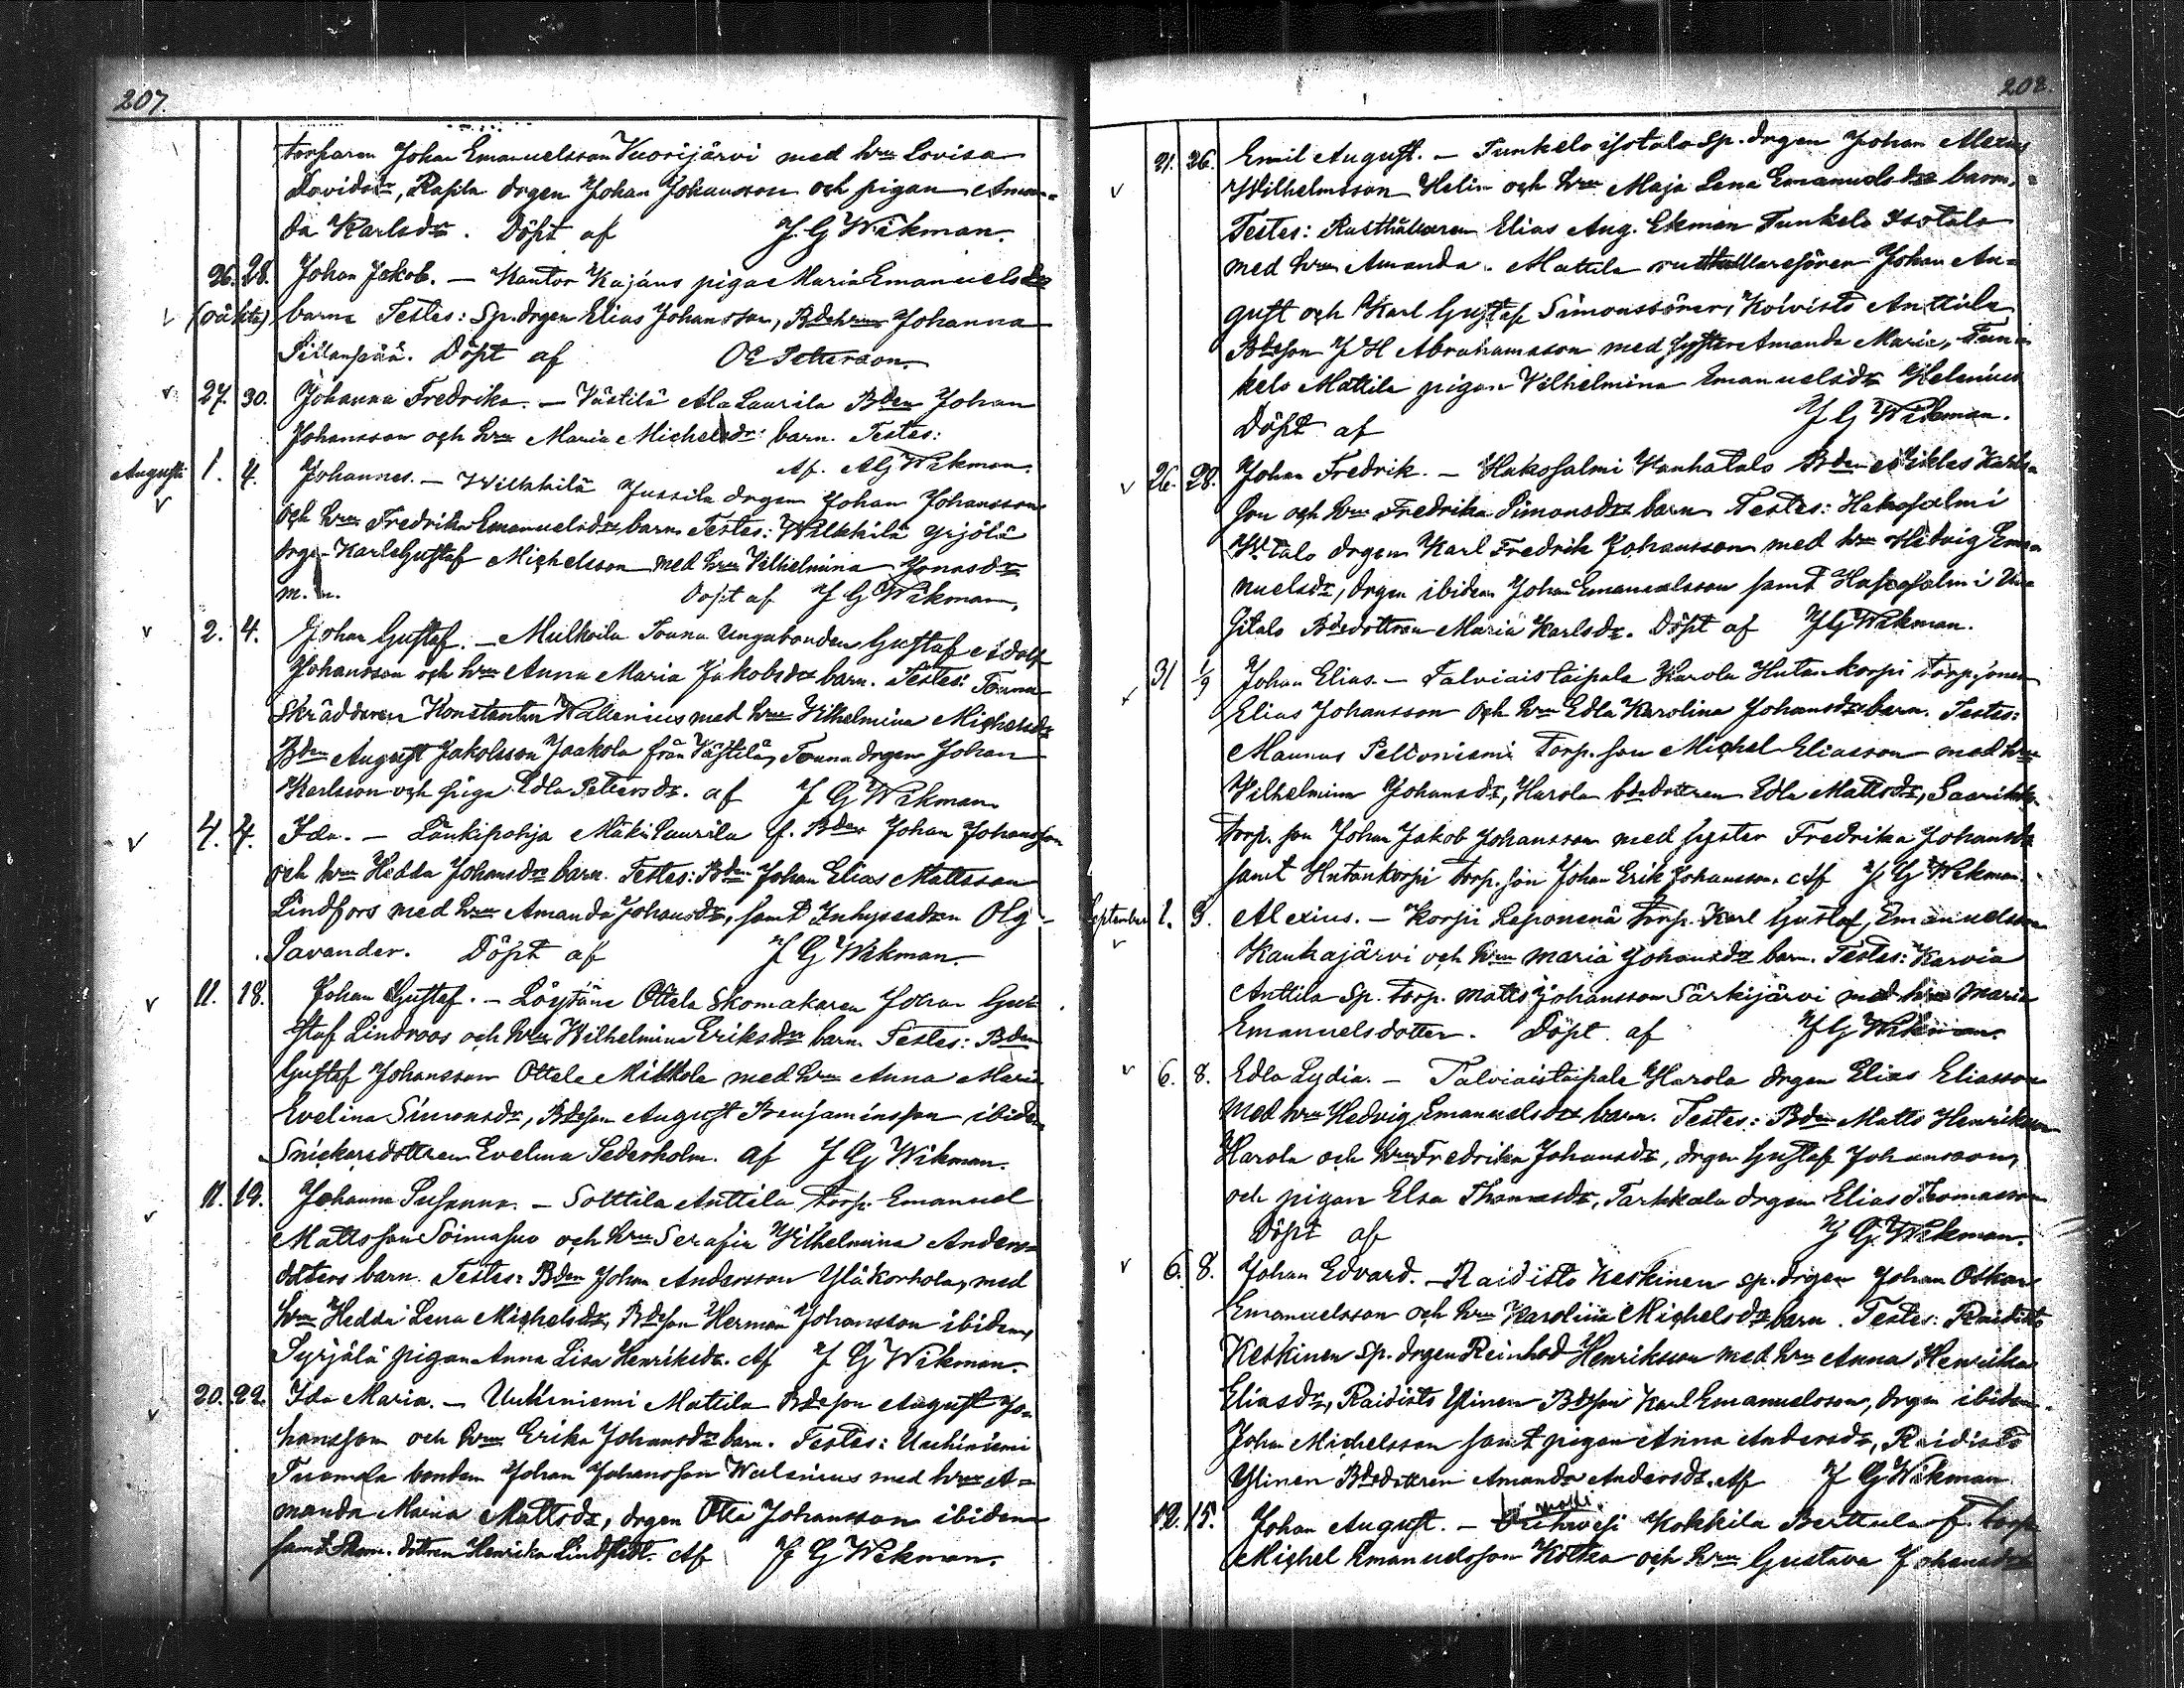 207.
torparen Johan Emanuelsson Kuorijärvi med hru Lovisa
Davidsdr, Rapila drgen Johan Johansson och pigan Aman-
da Karlsdr. Döpt af J. G Wikman.
26. 28. Johan Jakob. — Kantor Kajans piga Maria Emanuelsdrs
(oäkta) barn Testes: Sp. drgen Elias Johansson, Bdehrun Johanna
Sillanpää. Döpt af OE Petterson.
27. 30. Johanna Fredrika. — Västilä Ala Laurila Bden Johan
Johansson och hru Maria Michelsdrs barn. Testes:
Af. AG Wikman.
Augusti 1. 4. Johannes. — Wilkkilä Jussila drgen Johan Johansson
och hru Fredrika Emanuelsdrs barn Testes: Wilkkilä Yrjölä
drgen Karl Gustaf Michelsson med hru Vilhelmina Jonasdr
m. Döpt af J G Wikman.
2. 4. Johan Gustaf. — Mulkoila Touna Gustaf Adolf
Johansson och hru Anna Maria Jakobsdrs barn. Testes: Touna
Skräddaren Konstantin Wallenius med hru Vilhelmina Michelsdr
Bden August Jakobsson Jaakola från Västilä, Touna drgen Johan
Karlsson och piga Edla Pettersdr. af J G Wikman
4. 7. Ida. — Länkipohja Mäki Laurila f. Bden Johan Johansson
och hru Hedda Johansdrs barn. Testes: Bden Johan Elias Mattsson
Lindfors med hru Amanda Johansdr, samt Inhyses Olg
Savander. Döpt af J G Wikman.
11. 18. Johan Gustaf. — Löytäne Ottela Skomakaren Johan Gu-
staf Lindroos och hru Wilhelmina Eriksdrs barn. Testes: Bden
Gustaf Johansson Ottela Mikkola med hru Anna Maria
Evelina Simonsdr, Bdeson August Benjaminsson ibidem
Snickaredottren Evelina Sederholm. af J G Wikman.
11. 19. Johanna Susanna. — Solttila Anttila torp. Emanuel
Mattsson Soimasuo och hru Serafia Vilhelmina Anders-
dotters barn. Testes: Bden Johan Andersson Ylä Korhola, med
hru Hedda Lena Michelsdr, Bdeson Herman Johansson ibidem,
Syrjälä pigan Anna Lisa Henriksdr. Af J G Wikman.
20. 22. Ida Maria. — Uuhiniemi Mattila Bdeson August Jo-
hansson och hru Erika Johansdrs barn. Testes: Uuhiniemi
Tuomola bonden Johan Johansson Walenius med hru A-
manda Maria Mattsdr, drgen Otto Johansson ibidem
samt dottren Henrika Lindstedt. Af J G Wikman.
208.
21. 26. Emil August. — Tunkelo isotalo Sp. drgen Johan Alexius
Wilhelmsson Helin och hru Maja Lena Emanuelsdrs barn.
Testes: Rusthållaren Elias Aug. Ekman Tunkelo Isotalo
med hru Amanda. Mattila rusthållaresönen Johan Au-
gust och Karl Gustaf Simonssöner, Koivisto Anttila
Bdeson J H Abrahamsson med syster Amanda Maria, Tun-
kelo Mattila pigan Vilhelmina Emanuelsdr Helenius
Döpt af J G Wikman.
26. 28. Johan Fredrik. — Hakosalmi Vanhatalo Bden Niklas Karls-
son och hru Fredrika Simonsdrs barn Testes: Hakosalmi
talo drgen Karl Fredrik Johansson med hru Hedvig Ema-
nuelsdr, drgen ibidem Johan Emanuelsson samt Hakosalmi Uu-
sitalo Bdedottren Maria Karlsdr. Döpt af J G Wikman.
31 1/9 Johan Elias. — Talviaistaipale Harola Hutankorpi torp. sonen
Elias Johansson och hru Edla Karolina Johansdrs barn. Testes:
Maunus Peltoniemi torp. son Michel Eliasson med hru
Vilhelmina Johansdr, Harola bdedottren Edla Mattsdr,
torp. son Johan Jakob Johansson med syster Fredrika Johansdr
samt Hutankorpi torp. son Johan Erik Johansson. Af J G Wikman.
September 1. 9. Alexius. — Korpi Leponenä torp. Karl Gustaf Emanuelsson
Kaukajärvi och hru Maria Johansdrs barn. Testes: Karvia
Anttila Sp. torp. Matts Johansson Särkijärvi med hru Maria
Emanuelsdotter. Döpt af J G Wikman.
6. 8. Edla Lydia. — Talviaistaipale Harola drgen Elias Eliasson
med hru Hedvig Emanuelsdrs barn. Testes: Bden Matts Henriksson
Harola och hru Fredrika Johansdr, drgen Gustaf Johansson,
och pigan Elsa Thomasdr, Tarkkala drgen Elias Thomasson
Döpt af J G Wikman.
6. 8. Johan Edvard. — Raidisto Keskinen sp. drgen Johan Oskar
Emanuelsson och hru Karolina Michelsdrs barn. Testes: Raidisto
Keskinen sp. drgen Reinhod Henriksson med hru Anna Henrika
Eliasdr, Raidisto Ylinen Bdeson Karl Emanuelsson, drgen ibidem
Johan Michelsson samt pigan Anna Andersdr, Raidisto
Ylinen Bdedottren Amanda Andersdr. Af J G Wikman
12. 15. Johan August. — Kokkila Berttula f. torp.
Michel Emanuelsson Kolkka och hru Gustava Johansdrs